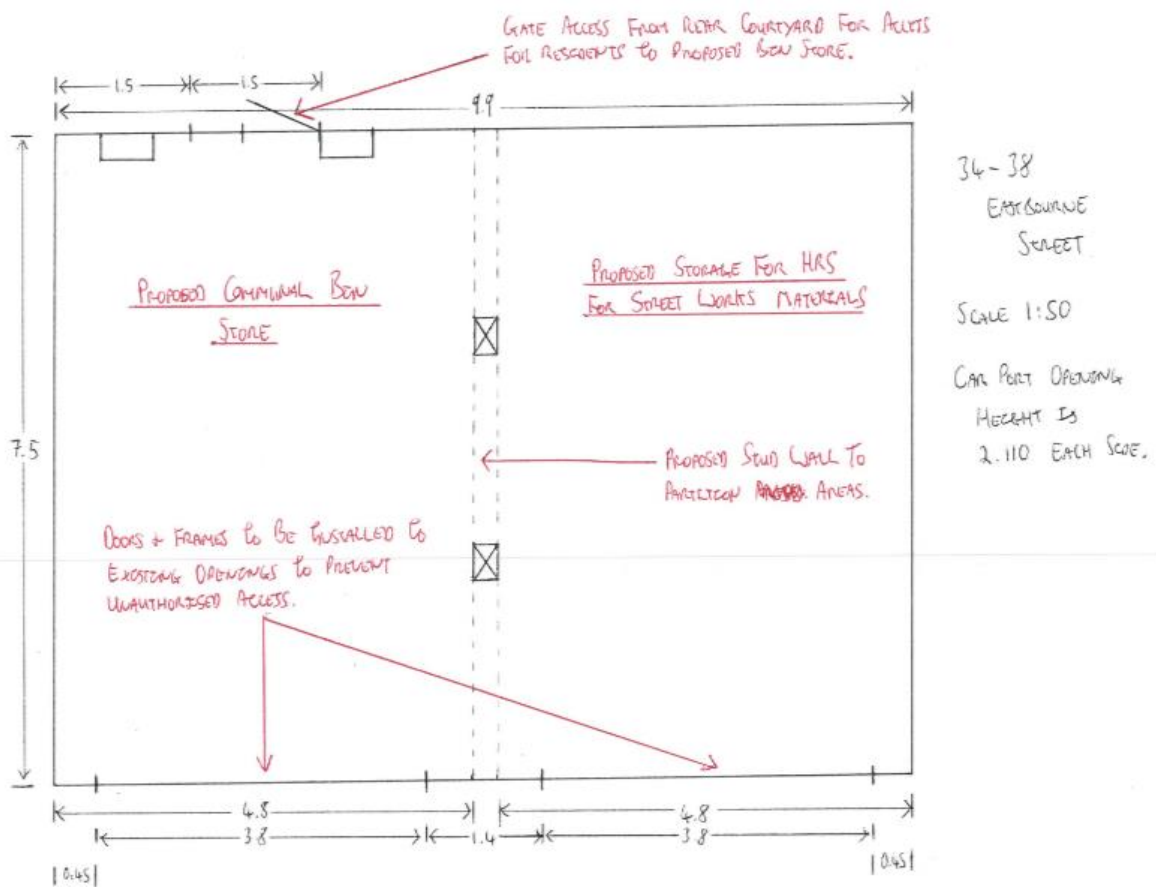 GATE ACCESS FROM REAR COURTYARD FOR ACCESS
FOR RESIDENTS TO PROPOSED BIN STORE.
1.5
1.5
9.9
34-38
EASTBOURNE
STREET
SCALE 1:50
CAR PORT OPENING
HEIGHT IS
2.110 EACH SIDE.
PROPOSED COMMUNAL BIN
STORE
PROPOSED STORAGE FOR HRS
FOR STREET WORKS MATERIALS
7.5
PROPOSED STUD WALL TO
PARTITION AREAS.
DOORS + FRAMES TO BE INSTALLED TO
EXISTING OPENINGS TO PREVENT
UNAUTHORISED ACCESS.
4.8
4.8
3.8
1.4
3.8
0.45
0.45